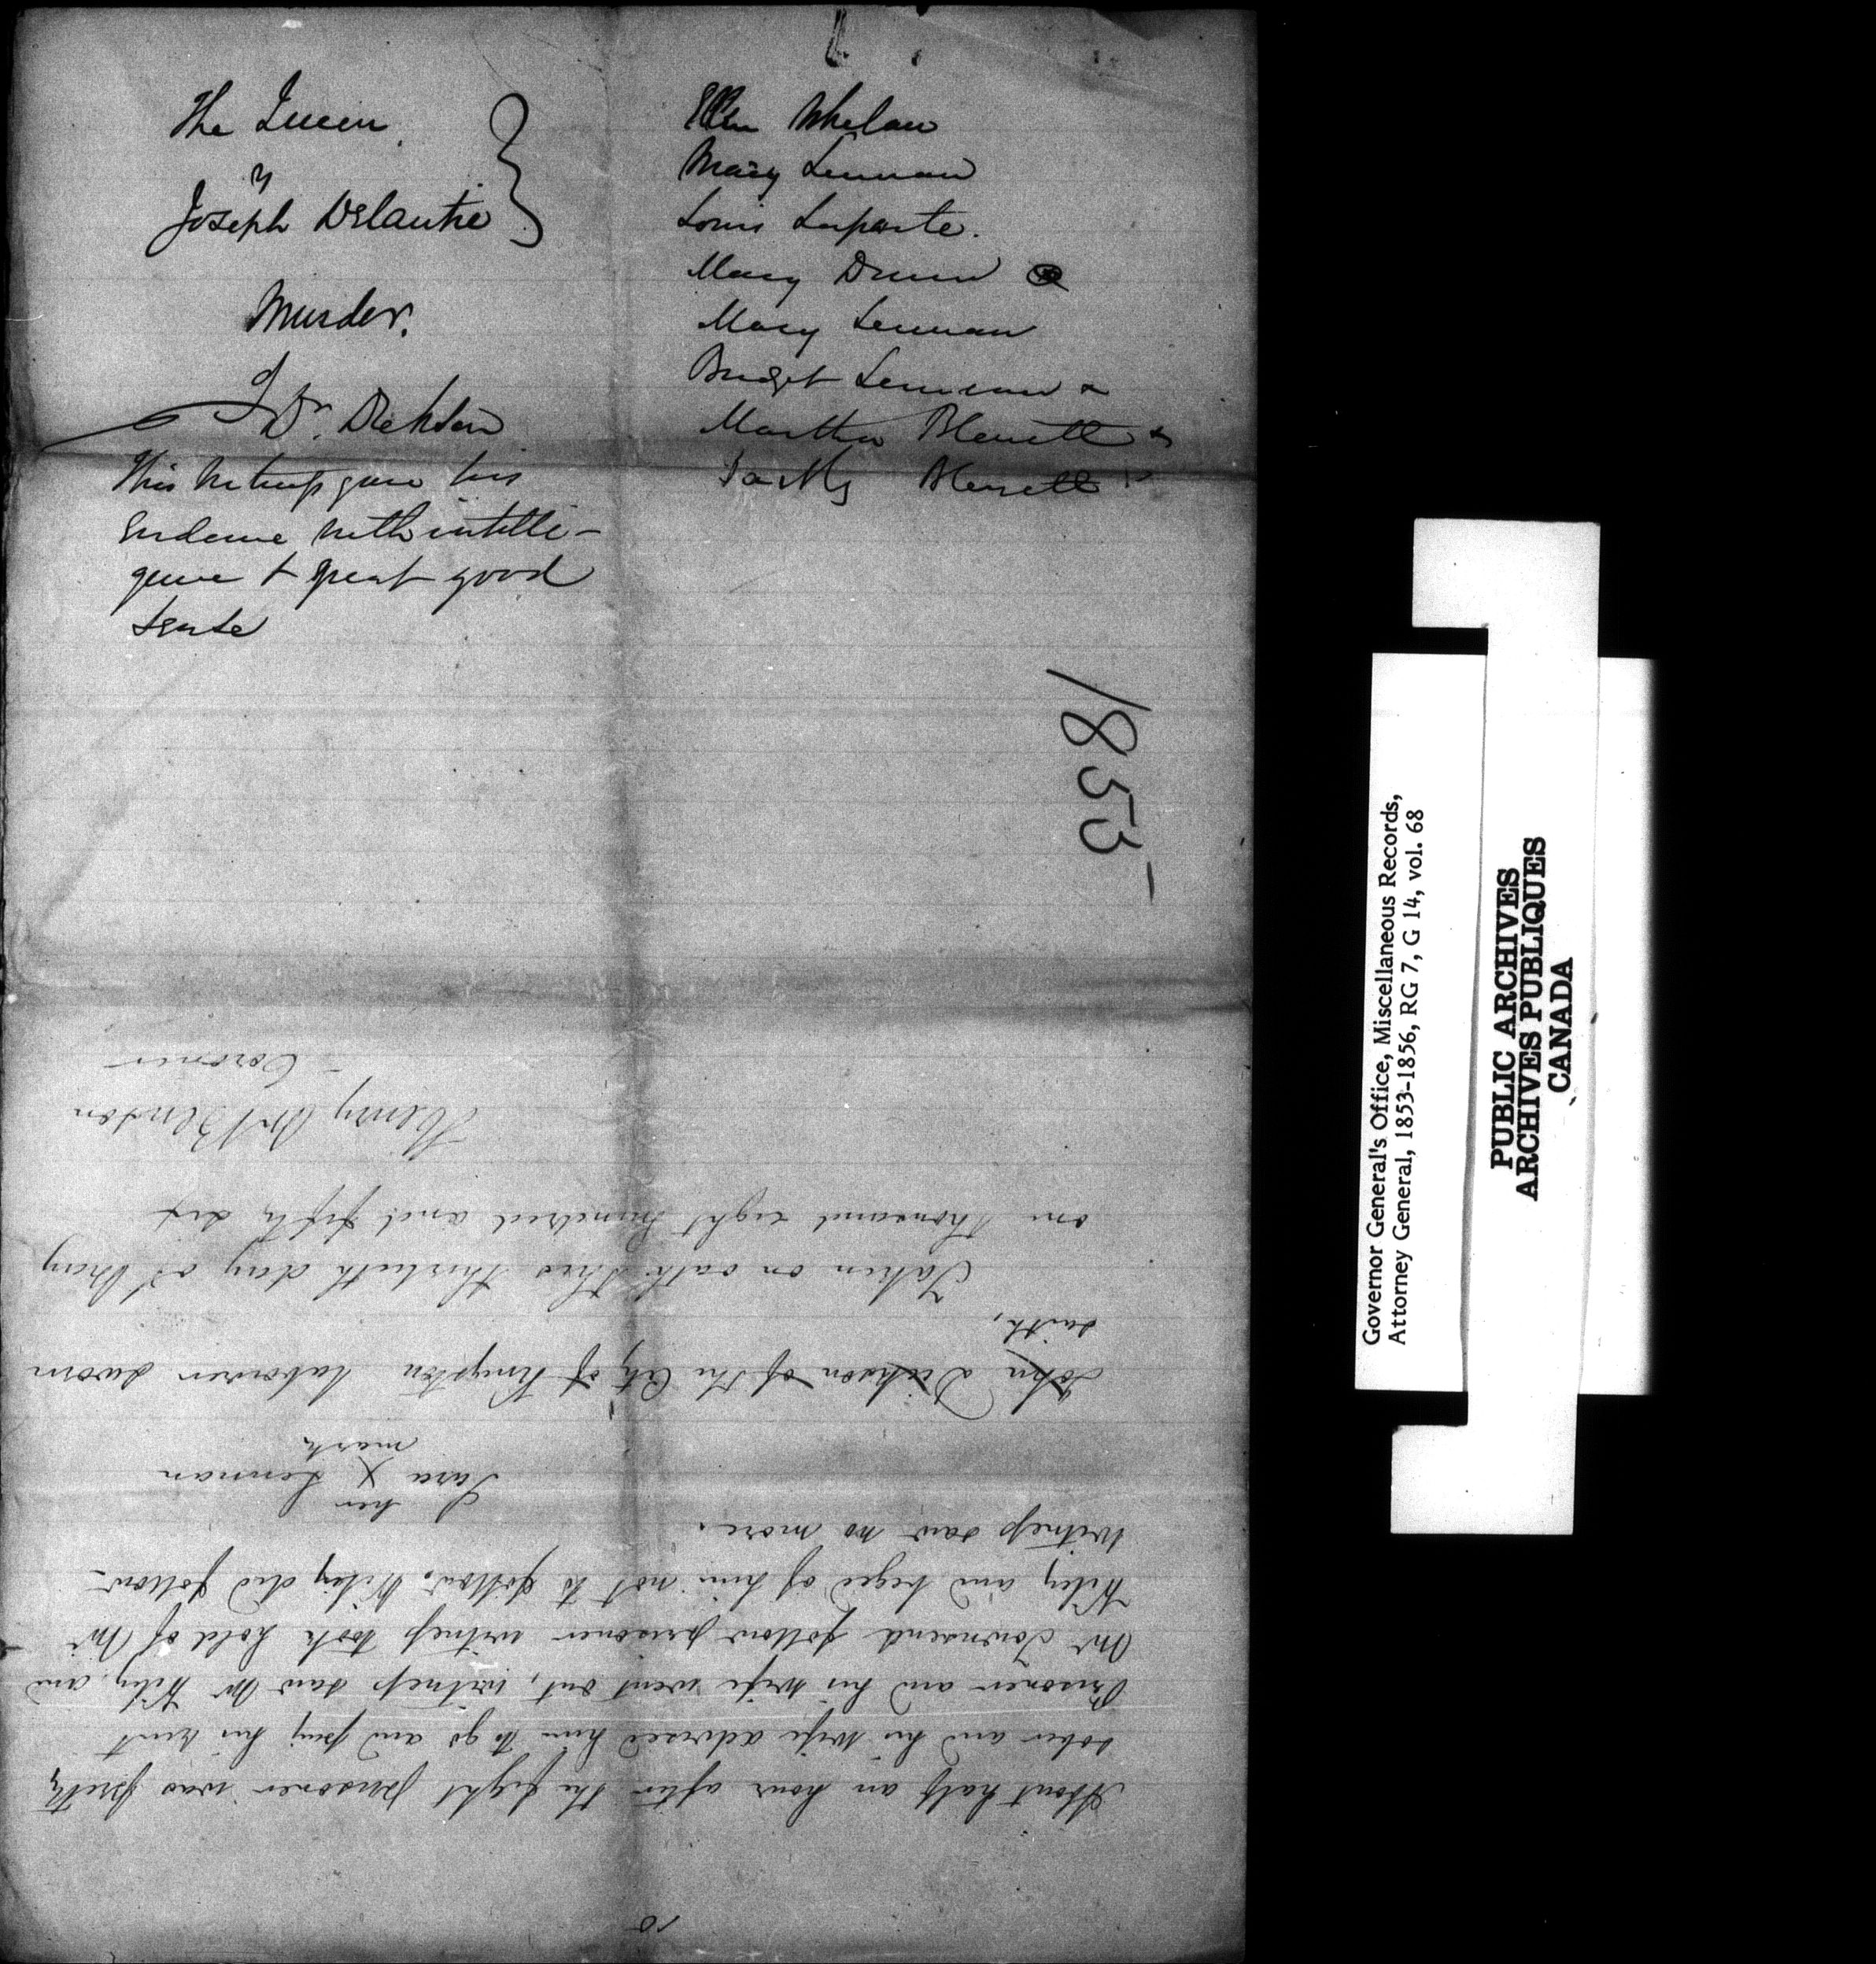 The Queen
vs
Joseph Delantie
Murder.
Dr. Dickson
This witness gave his
Evidence with intelli-
gence & great good
sense
Ellen Whelan
Mary Lennan
Louis Laporte.
Mary Dunn
Mary Lennan
Bridget Lennan
Martha Blewett
Blewett
1855
10
About half an hour after the fight prisoner was pretty
sober and his wife advised him to go and pay his rent
Prisoner and his wife went out, witness saw Mr Wiley and
Mr Townsend follow prisoner witness took hold of Mr
Wiley and beged of him not to follow. Wiley did follow—
Witness saw no more.
her
Sara X Lennan
mark
John Dickson of the City of Kingston labourer sworn
saith,
Taken on oath this thirtieth day of May
one thousand eight hundred and fifty six
Henry W Benson
Coroner
Governor General's Office, Miscellaneous Records,
Attorney General, 1853-1856, RG 7, G 14, vol. 68
PUBLIC ARCHIVES
ARCHIVES PUBLIQUES
CANADA